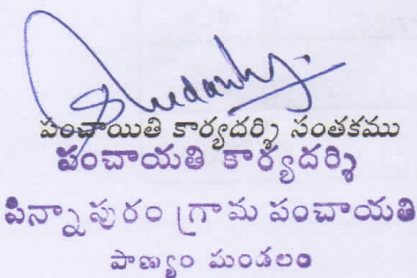 పంచాయితి కార్యదర్శి సంతకము
పంచాయతి కార్యదర్శి
పిన్నాపురం గ్రామ పంచాయతి
పాణ్యం మండలం